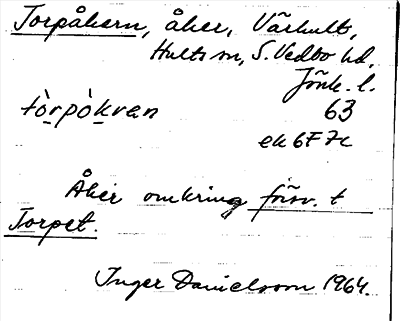 Torpåkern, åker, Vårhult,
Hults sn, S. Vedbo hd,
Jönk. l.
tòrpòkren 63
ek 6F 7c
Åker omkring försv. t
Torpet.
Inger Danielsson 1964.